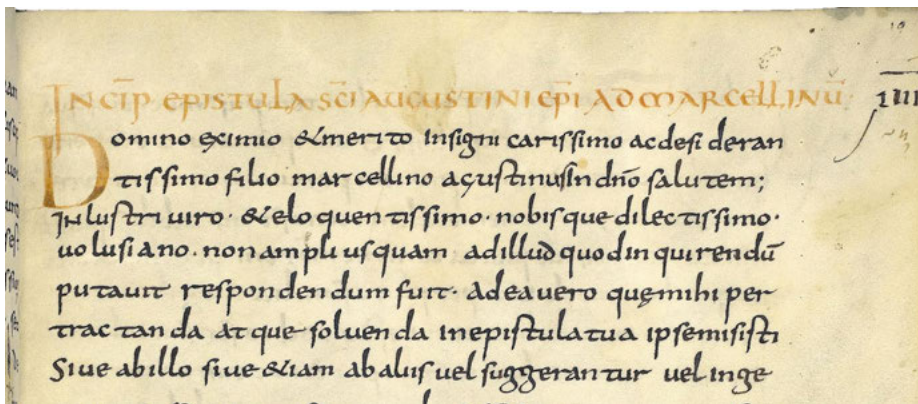 INCIP̄ EPISTULA SC̄I AUGUSTINI EP̄I AD MARCELLINŪ
IIII
Domino eximio & merito insigni carissimo ac desideran
tissimo filio marcellino agustinus In dn̄o salutem;
INlustri uiro · & eloquentissimo · nobisque dilectissimo ·
uolusiano · non amplius quam ad illud quod inquirendū
putauit respondendum fuit · ad ea uero quę mihi per
tractanda atque soluenda in epistula tua ipse misisti
Siue ab illo siue &iam ab aliis uel suggerantur uel inge